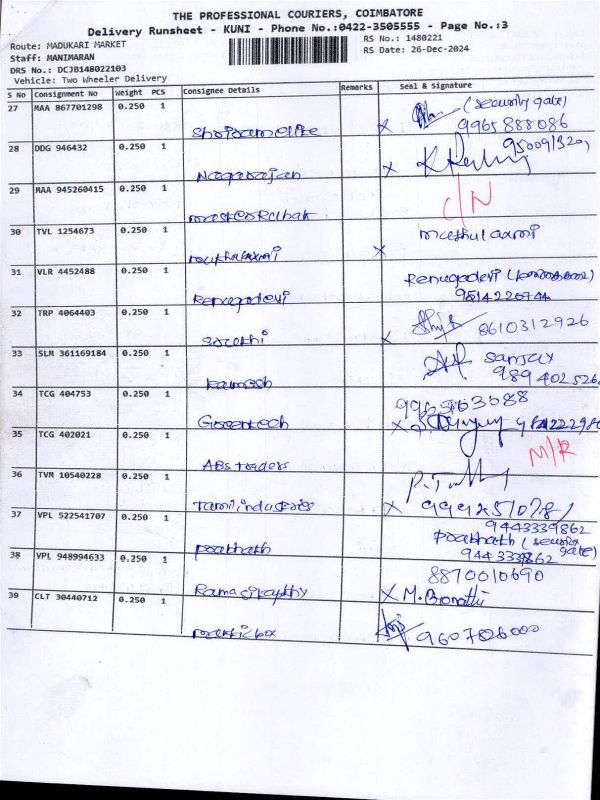 THE PROFESSIONAL COURIERS, COIMBATORE
Delivery Runsheet - KUNI - Phone No.:0422-3505555 - Page No.:3
Route: MADUKARI MARKET
RS No.: 1480221
Staff: MANIMARAN
RS Date: 26-Dec-2024
DRS No.: DCJB148022103
Vehicle: Two Wheeler Delivery
S No Consignment No Weight PCS Consignee Details Remarks Seal & Signature
27 MAA 867701298 0.250 1 (security gate)
9965888086
X
28 DDG 946432 0.250 1
Nagarajan X
29 MAA 945260415 0.250 1 C/N
30 TVL 1254673 0.250 1 muthulaxmi
muthulaxmi X
31 VLR 4452488 0.250 1 Renugadevi
Renugadevi
32 TRP 4064403 0.250 1 8610312926
X
33 SLM 361169184 0.250 1 sanjay
Ramesh
34 TCG 404753 0.250 1
Greentech X
35 TCG 402021 0.250 1 M/R
ABS traders
36 TVM 10540228 0.250 1
Tamilindustries X
37 VPL 522541707 0.250 1 9443339862
prabhath Prabhath (security gate)
38 VPL 948994633 0.250 1 9443339862
8870010690
X M.
39 CLT 30440712 0.250 1